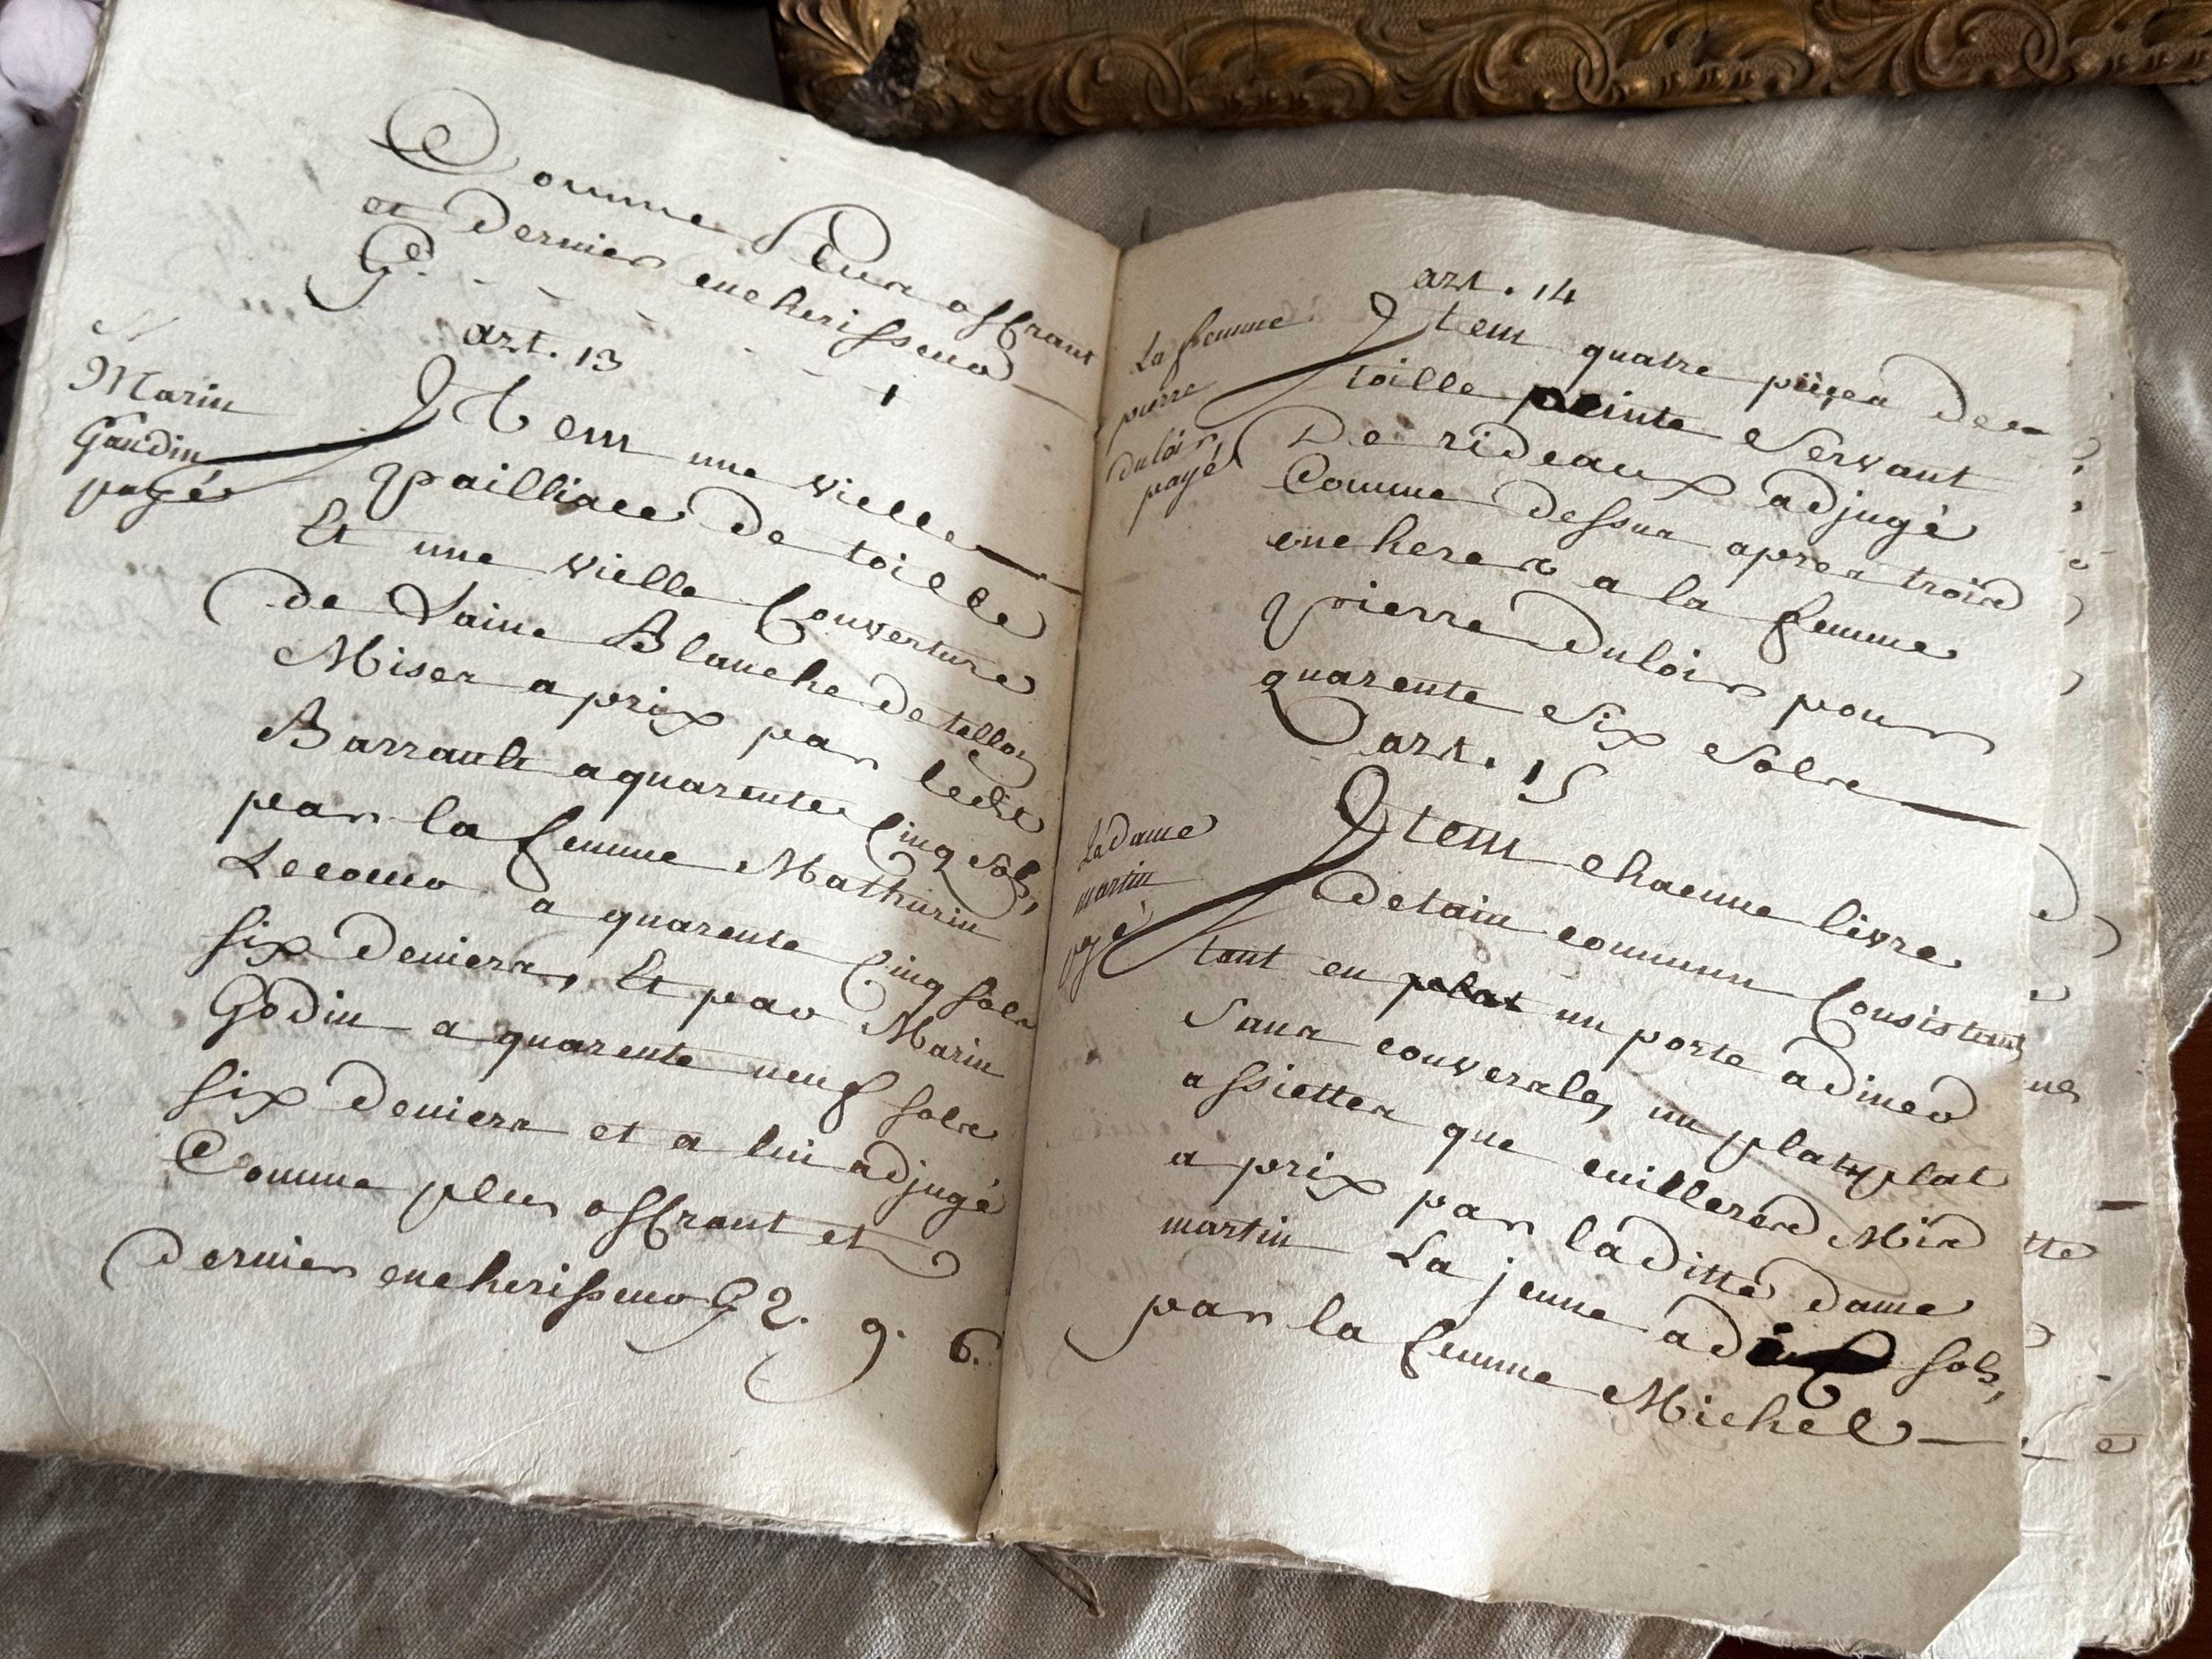 Comme plus offrant
et dernier encherisseur
art. 13
Marin
Gaudin
payé
Item une vielle
pailliace de toille
Et une vielle Couverture
de Laine Blanche detelloz
Mises a prix par ledit
Barrault a quarente Cinq sols,
par la femme Mathurin
Lecomo a quarente Cinq sols
six deniers, Et par Marin
Godin a quarente neuf sols
six deniers et a lui adjugé
Comme plus offrant et
dernier encherisseur 2. 9. 6.
art. 14
La femme
pierre
duloir
payé
Item quatre pieces de
toille peinte Servant
De rideaux adjugé
Comme dessus apres trois
encheres a la femme
pierre duloir pour
quarente Six Sols
art. 15
La dame
martin
payé
Item chacune livre
detain commun Consistant
tant en un porte a diner
Sans couvercle, un plat, plat
assiettes que cuilleres Mis
a prix par laditte dame
martin La jeune a sols,
par la femme Michel